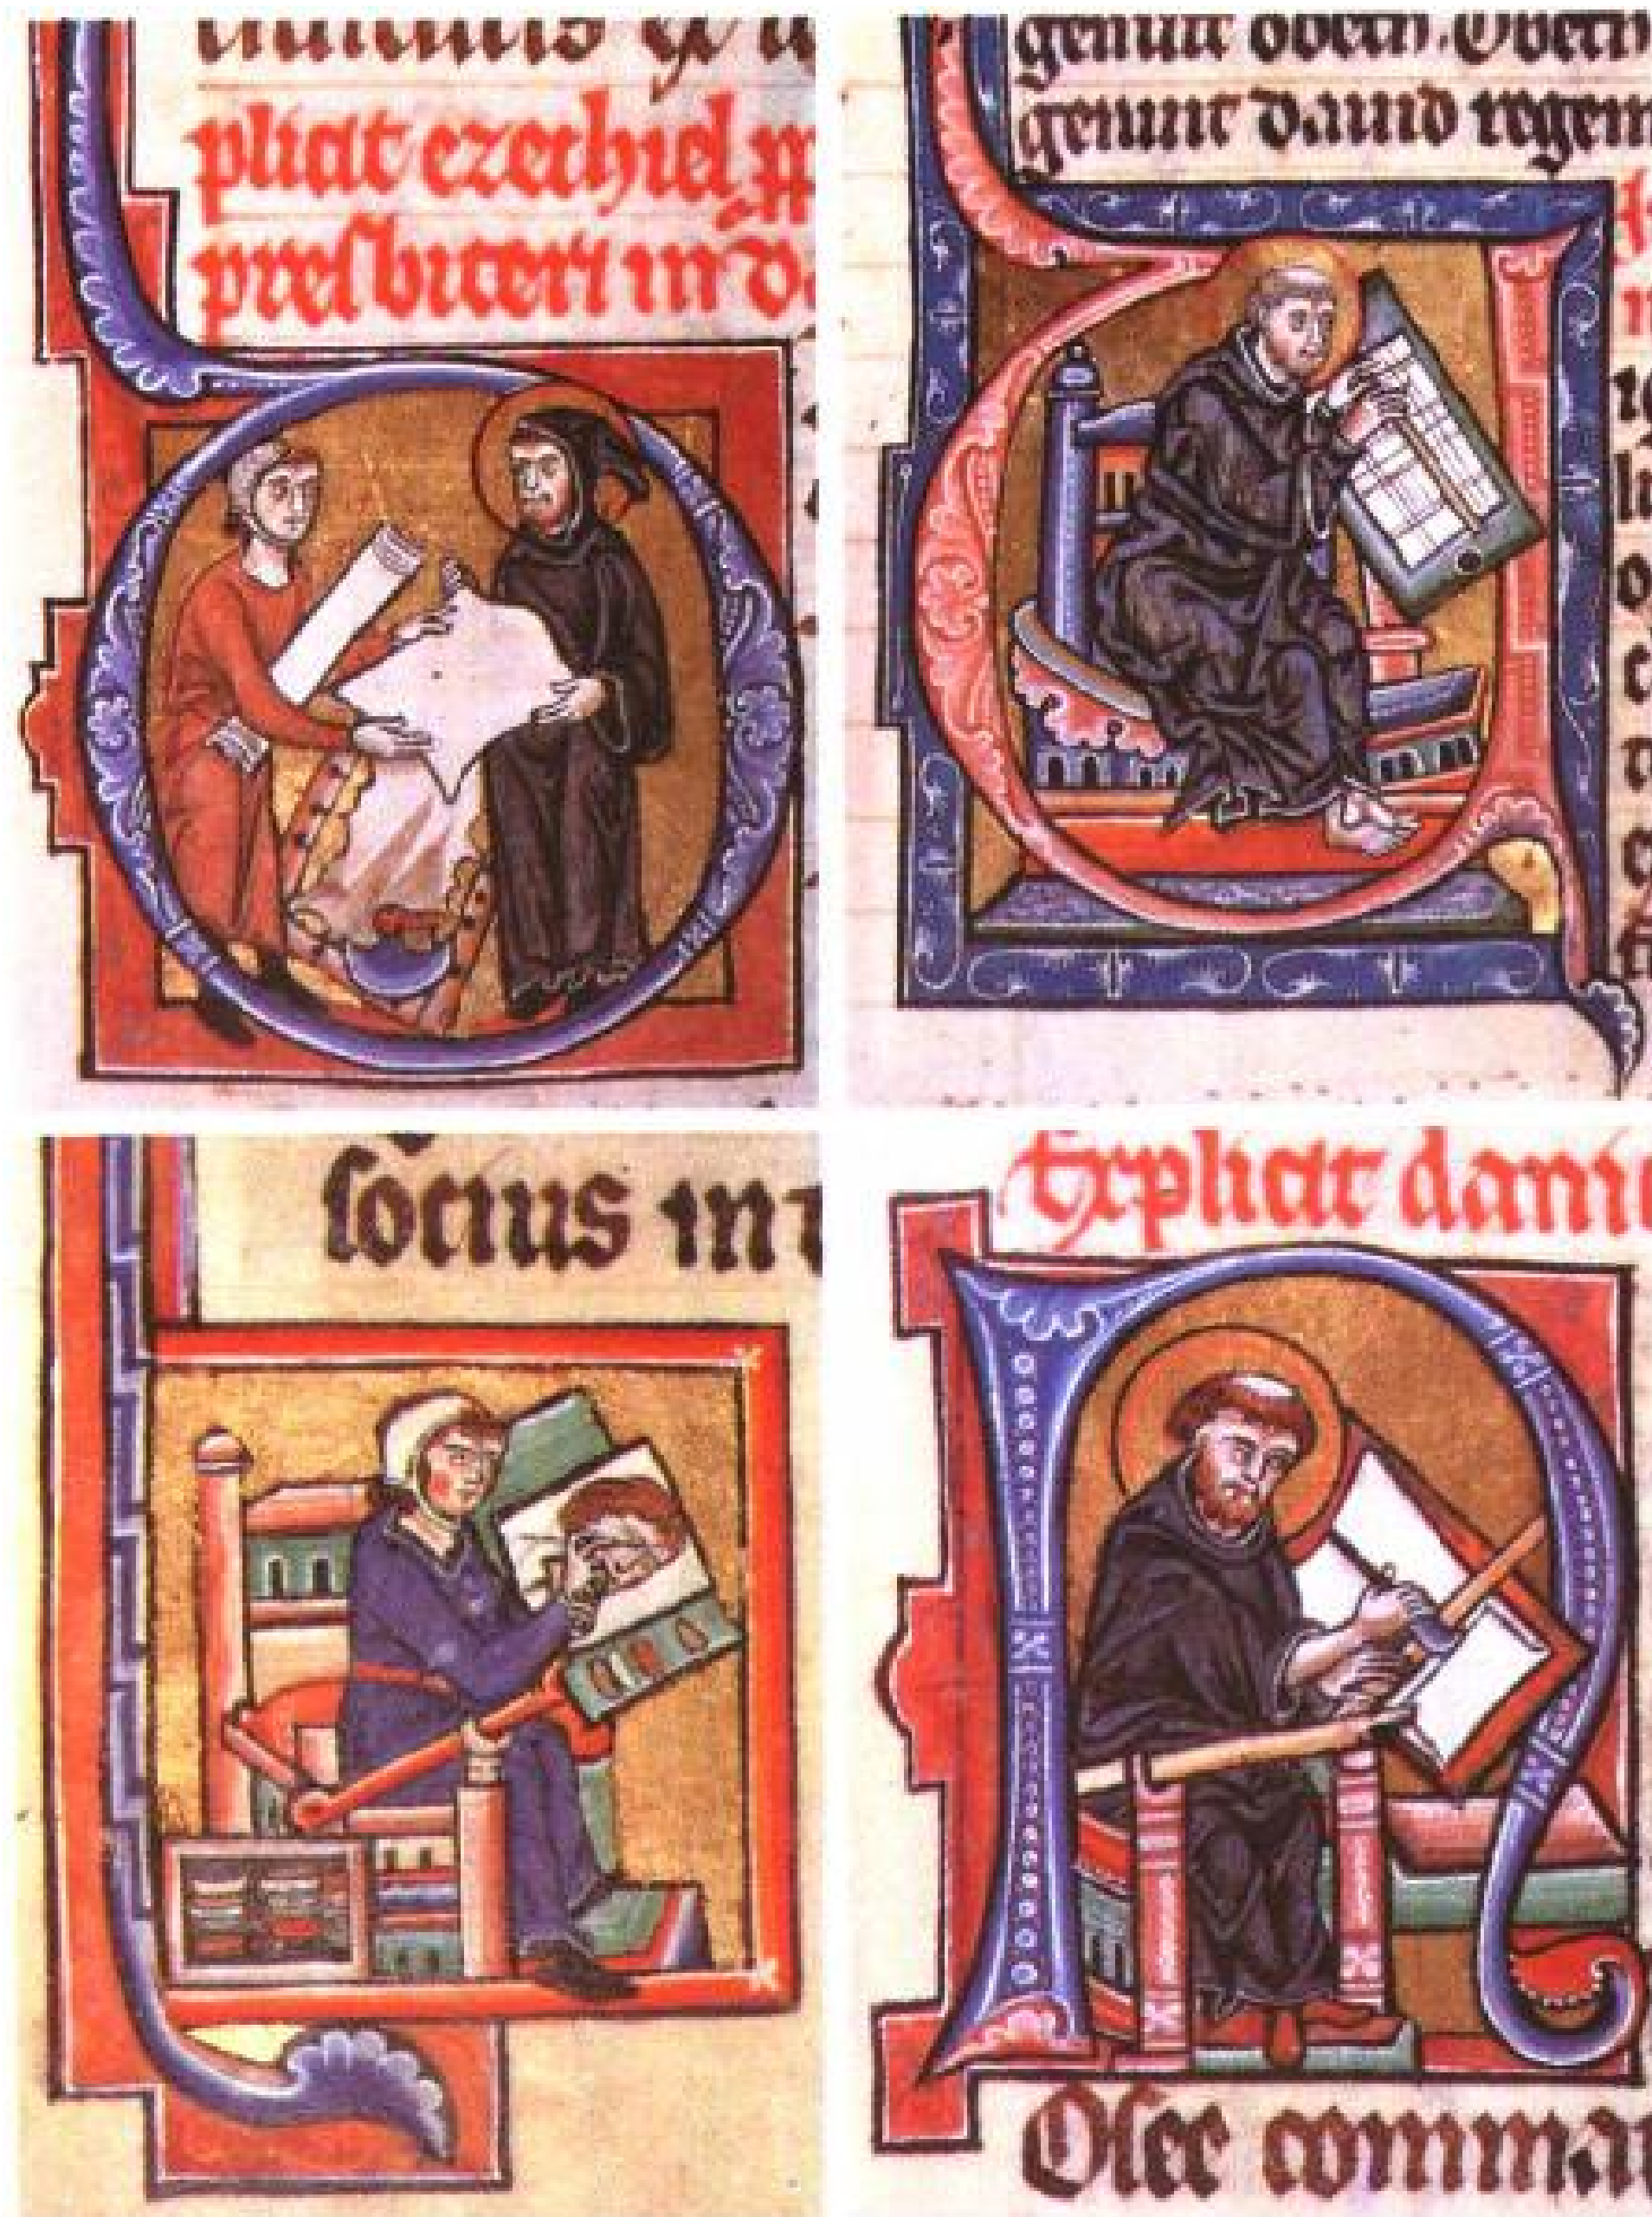 plicit ezechiel
presbiteri in
genuit obeth. Obeth
genuit dauid regem
socius in
Explicit dani
Osee comma